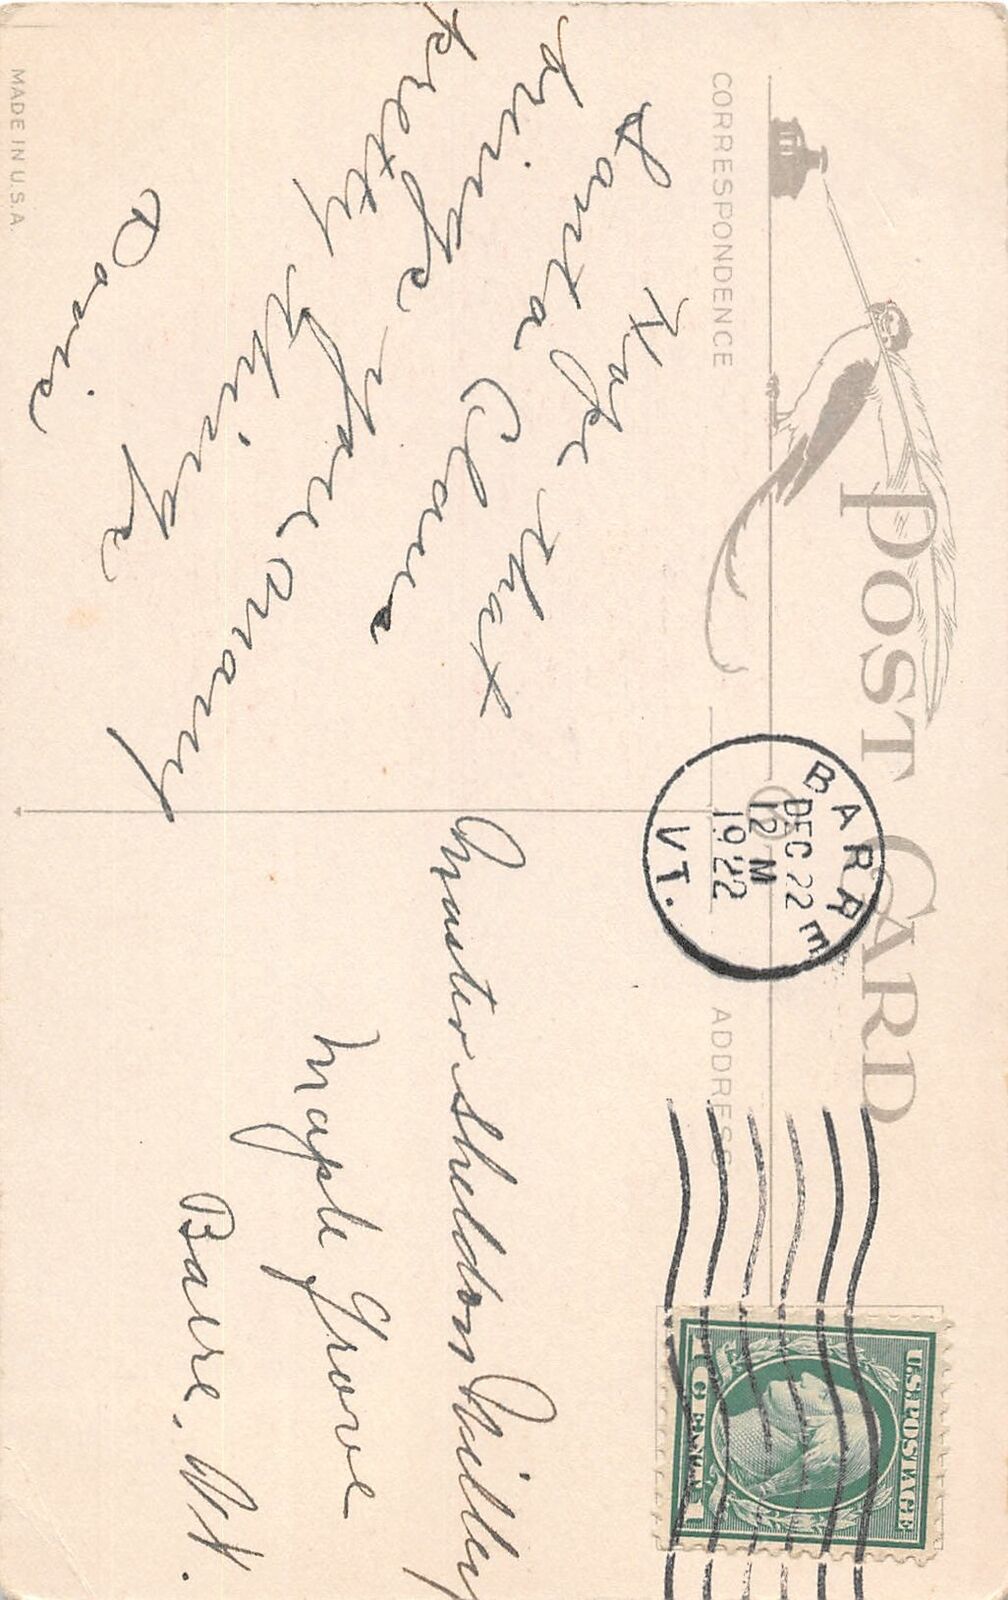 POST CARD
CORRESPONDENCE
ADDRESS
BARRE
DEC 22
12 M
1922
VT.
U.S. POSTAGE
1 CENT 1
Hope that
Santa Claus
brings you many
pretty things
Doris
Master Sheldon Milley
Maple Grove
Barre, Vt.
MADE IN U.S.A.